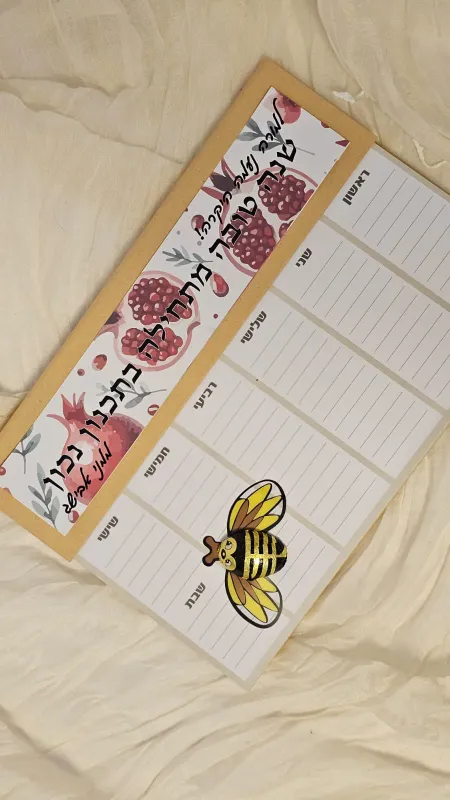 למורה נעמה היקרה!
שנה טובה מתחילה בתכנון נכון
ראשון
שני
שלישי
רביעי
חמישי
שישי
שבת